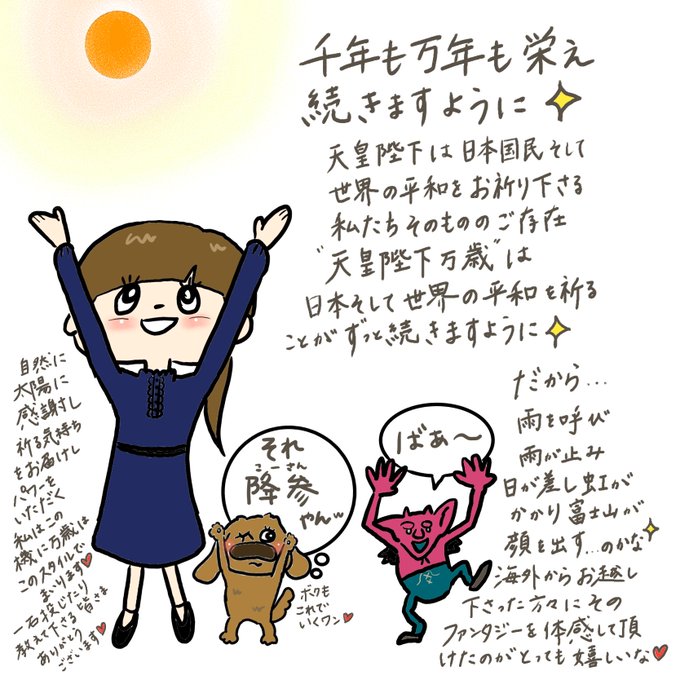 千年も万年も栄え
続きますように
天皇陛下は日本国民そして
世界の平和をお祈り下さる
私たちそのもののご存在
”天皇陛下万歳”は
日本そして世界の平和を祈る
ことがずっと続きますように
だから...
雨を呼び
雨が止み
日が差し虹が
かかり富士山が
顔を出す...のかな
海外からお越し
下さった方々にその
ファンタジーを体感して頂
けたのがとっても嬉しいな
自然に
太陽に
感謝し
祈る気持ち
をお届けし
パワーを
いただく
私はこの
機に万歳は
このスタイルで
まいります
一石投じたり
教えて下さる皆さま
ありがとう
ございます
それ
こーさん
降参
やんw
ボクも
これで
いくワン
ばぁ〜